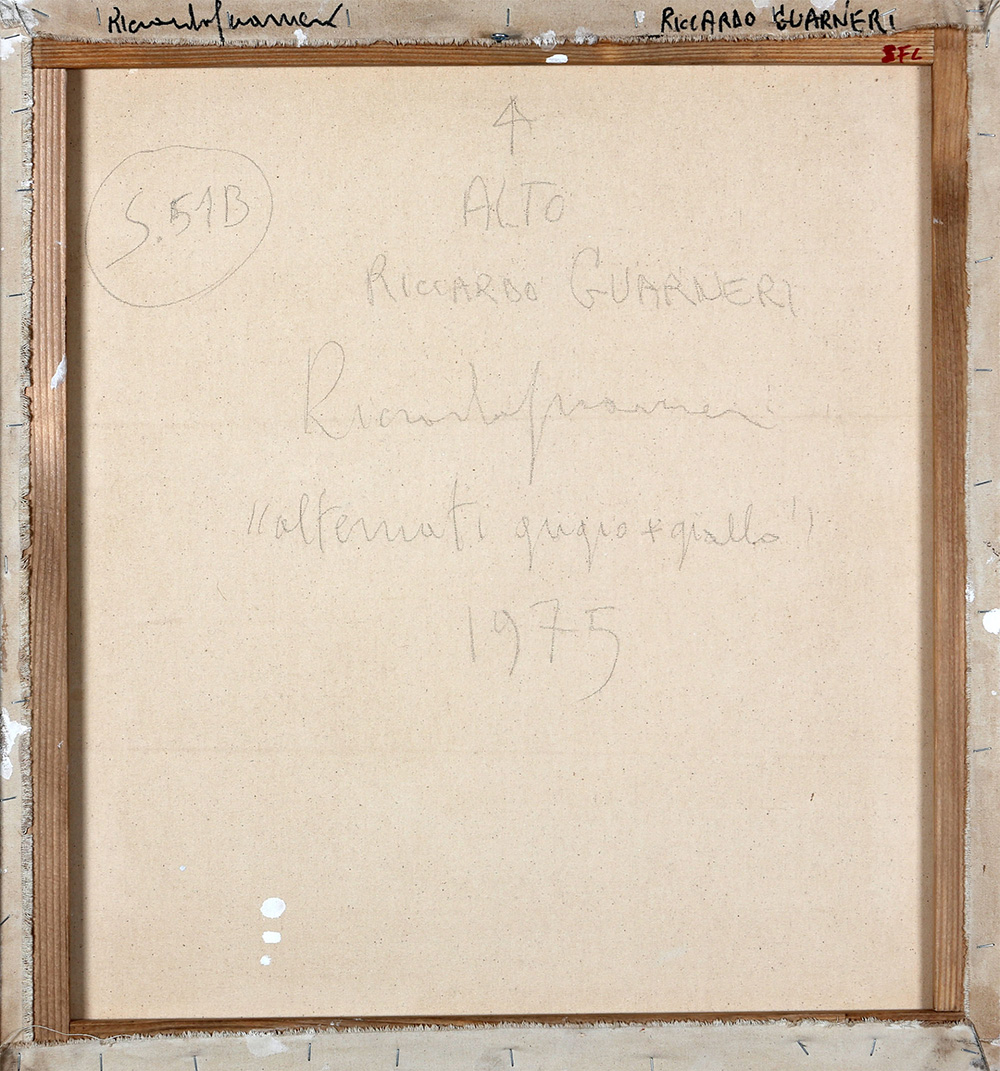 Riccardo Guarneri RICCARDO GUARNERI
SFL
S.51B
ALTO
RICCARDO GUARNERI
Riccardo Guarneri
"alternati grigio + giallo"
1975